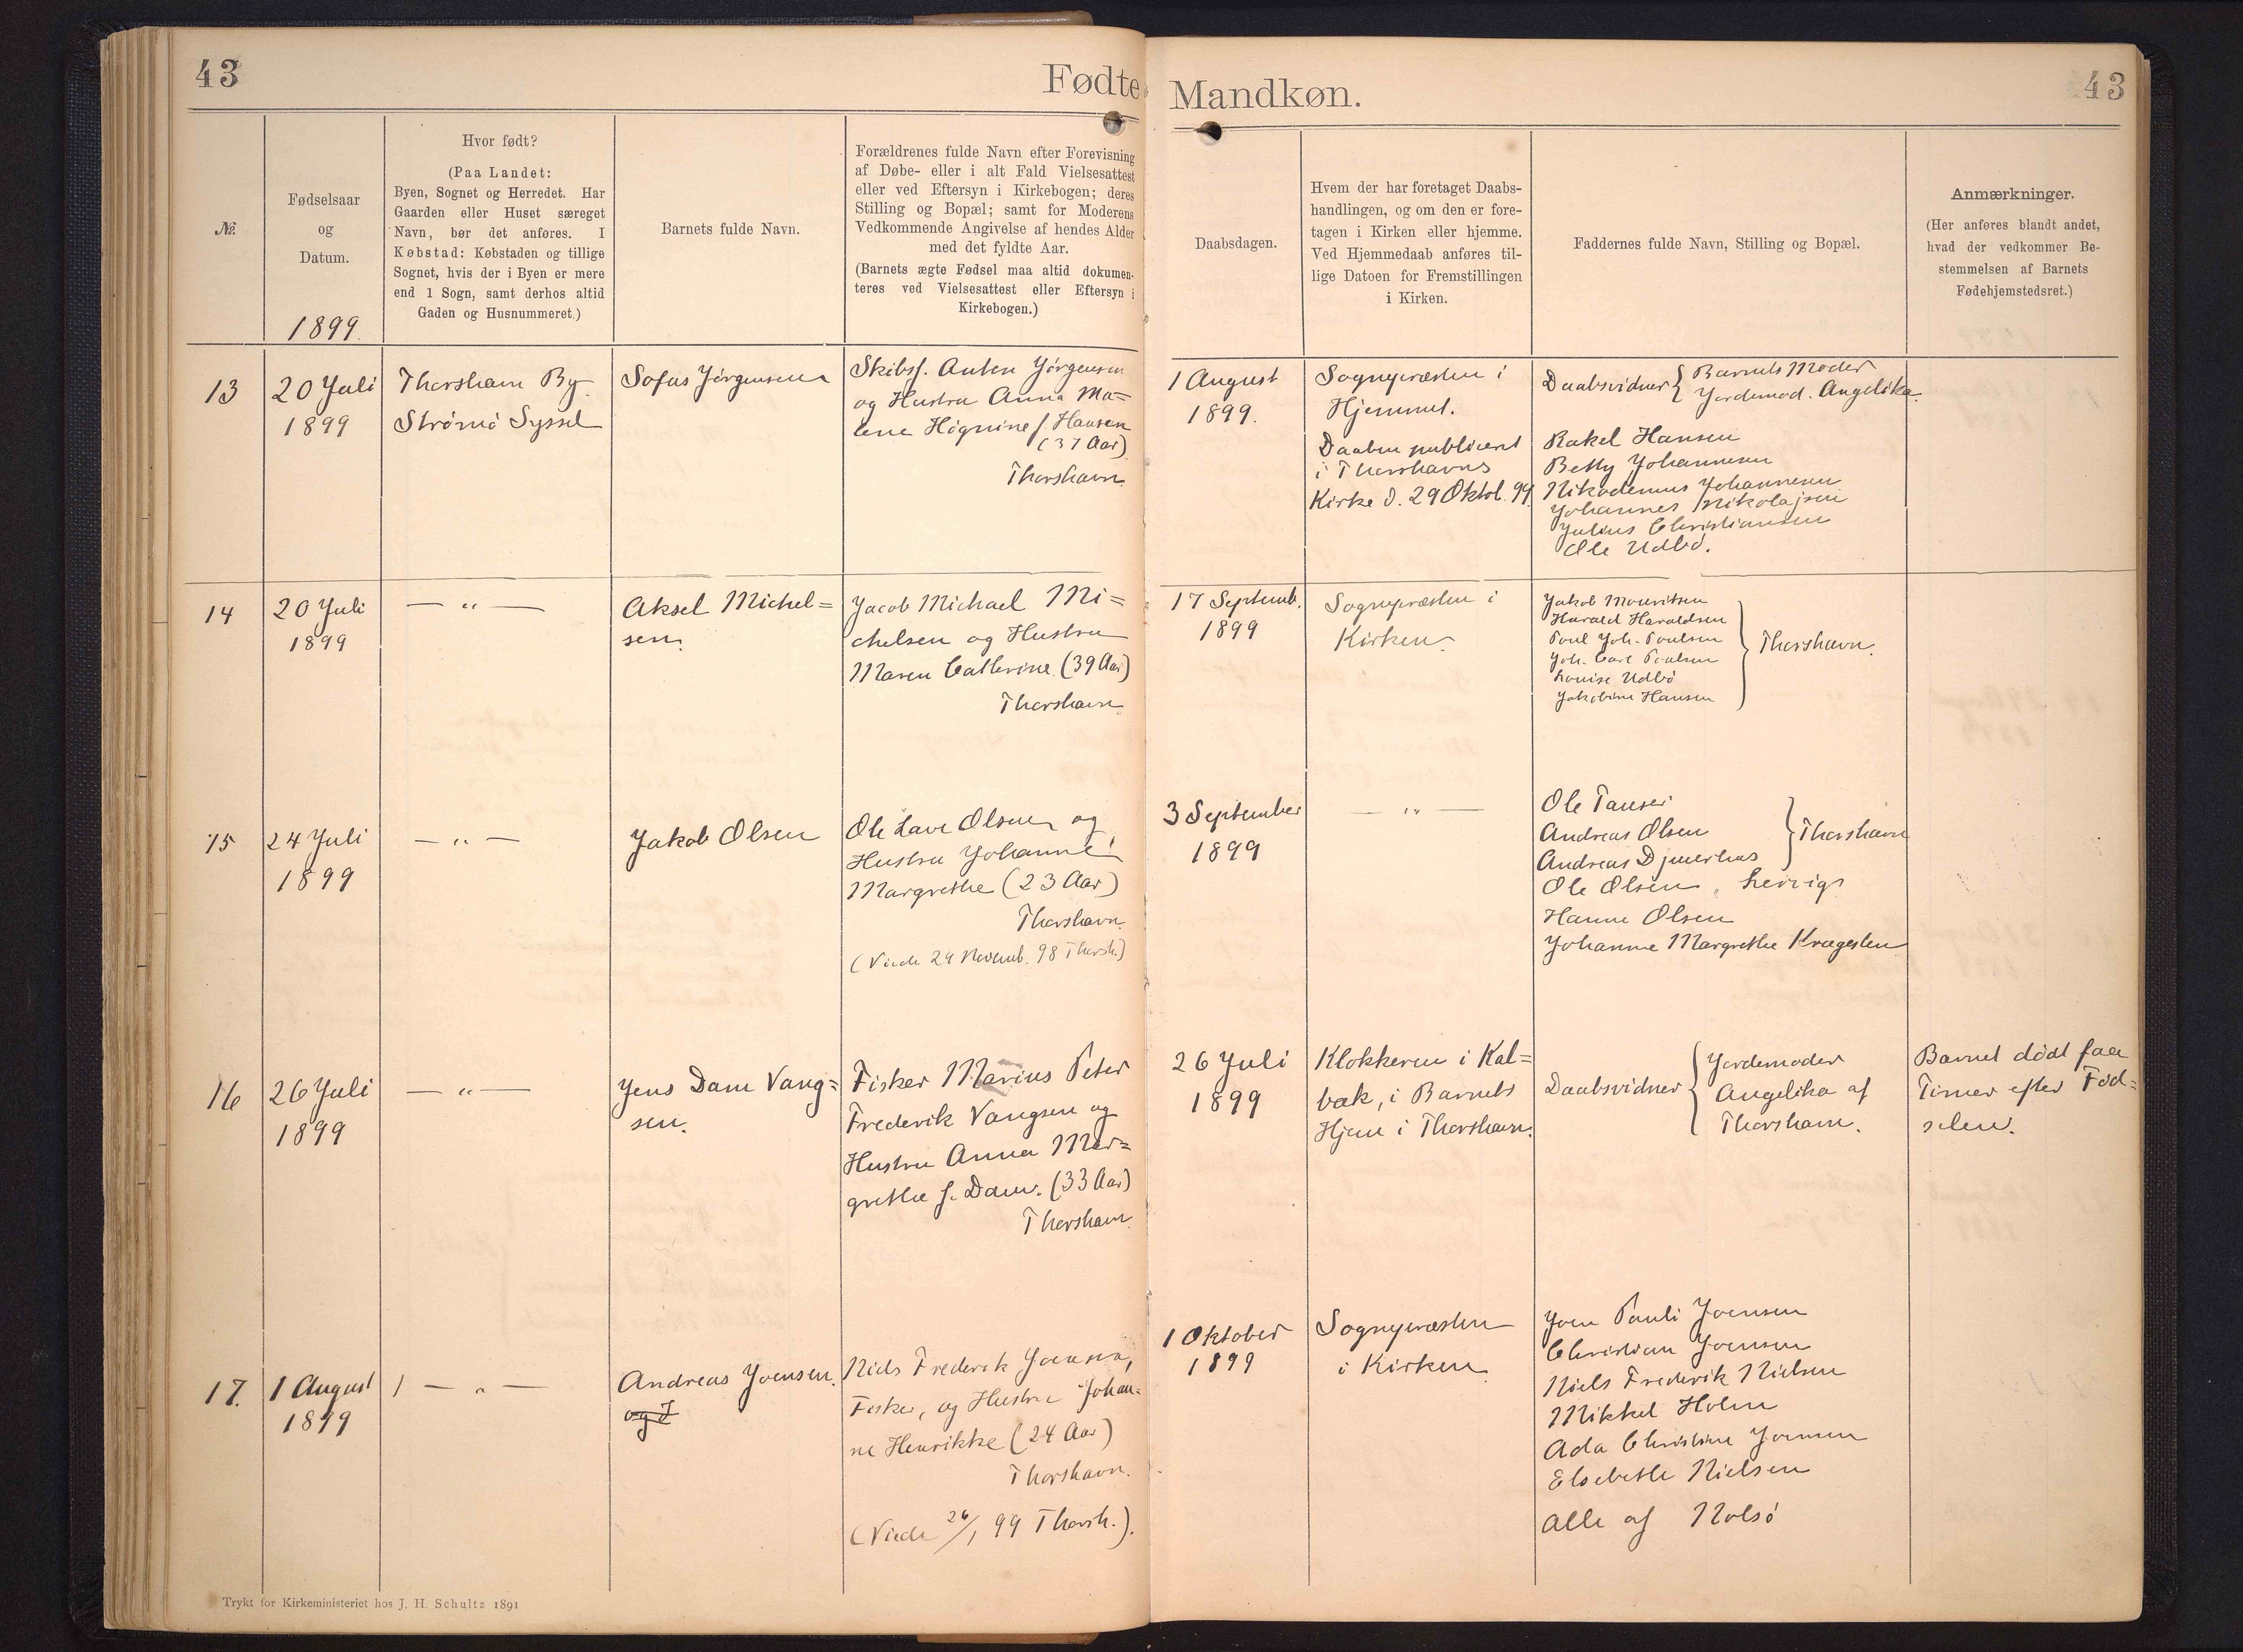 43
Fødte
Mandkøn.
43
№
Fødselsaar
og
Datum.
1899.
Hvor født?
(Paa Landet:
Byen, Sognet og Herredet. Har
Gaarden eller Huset særeget
Navn, bør det anføres. I
Købstad: Købstaden og tillige
Sognet, hvis der i Byen er mere
end 1 Sogn, samt derhos altid
Gaden og Husnummeret.)
Barnets fulde Navn.
Forældrenes fulde Navn efter Forevisning
af Døbe- eller i alt Fald Vielsesattest
eller ved Eftersyn i Kirkebogen; deres
Stilling og Bopæl; samt for Moderens
Vedkommende Angivelse af hendes Alder
med det fyldte Aar.
(Barnets ægte Fødsel maa altid dokumen-
teres ved Vielsesattest eller Eftersyn i
Kirkebogen.)
Daabsdagen.
Hvem der har foretaget Daabs-
handlingen, og om den er fore-
tagen i Kirken eller hjemme.
Ved Hjemmedaab anføres til-
lige Datoen for Fremstillingen
i Kirken.
Faddernes fulde Navn, Stilling og Bopæl.
Anmærkninger.
(Her anføres blandt andet,
hvad der vedkommer Be-
stemmelsen af Barnets
Fødehjemstedsret.)
13
20 Juli
1899
Thorshavn By
Strømø Syssel
Sofus Jörgensen
Skibsf. Anton Jörgensen
og Hustru Anna Ma=
lene Högnine f. Hansen
(37 Aar)
Thorshavn.
1 August
1899.
Sognepræsten i
Hjemmet.
Daaben publiceret
i Thorshavns
Kirke d. 29 Oktob. 99.
Daabsvidner { Barnets Moder
Jordemod. Angelika.
Rakel Hansen
Betty Johannesen
Nikodemus Johannesen
Johannes Nikolajsen
Julius Christiansen
Ole Udbö.
14
20 Juli
1899
— " —
Aksel Michel=
sen.
Jacob Michael Mi=
chelsen og Hustru
Maren Cathrine (39 Aar)
Thorshavn.
17 Septemb.
1899
Sognepræsten i
Kirken.
Jakob Mouritsen
Harald Haraldsen
Poul Joh. Poulsen
Joh. Carl Poulsen
Louise Udbö
Jakobine Hansen
} Thorshavn.
15
24 Juli
1899
— " —
Jakob Olsen
Ole Lave Olsen og
Hustru Johanne
Margrethe (23 Aar)
Thorshavn.
(Viede 29 Novemb. 98 Thorsh.)
3 September
1899
— " —
Ole Tausen
Andreas Olsen
Andreas Djuurhus
} Thorshavn
Ole Olsen,
Hanne Olsen
Johanne Margrethe
16
26 Juli
1899
— " —
Jens Dam Vang=
sen.
Fisker Marius Peter
Frederik Vangsen og
Hustru Anna Mar=
grethe f. Dam. (33 Aar)
Thorshavn.
26 Juli
1899
Klokkeren i Kal=
bak, i Barnets
Hjem i Thorshavn.
Daabsvidner { Jordemoder
Angelika af
Thorshavn.
Barnet dödt faa
Timer efter Föd=
selen.
17.
1 August
1899
— " —
Andreas Joensen.
og J
Niels Frederik Joensen,
Fisker, og Hustru Johan=
ne Henrikke (24 Aar)
Thorshavn.
(Viede 26/1 99 Thorsh.).
1 Oktober
1899
Sognepræsten
i Kirken
Joen Pauli Joensen
Christian Joensen
Niels Frederik Nielsen
Mikkel Holm
Ada Christine Joensen
Elsebeth Nielsen
Alle af Nolsö
Trykt for Kirkeministeriet hos J. H. Schultz 1891